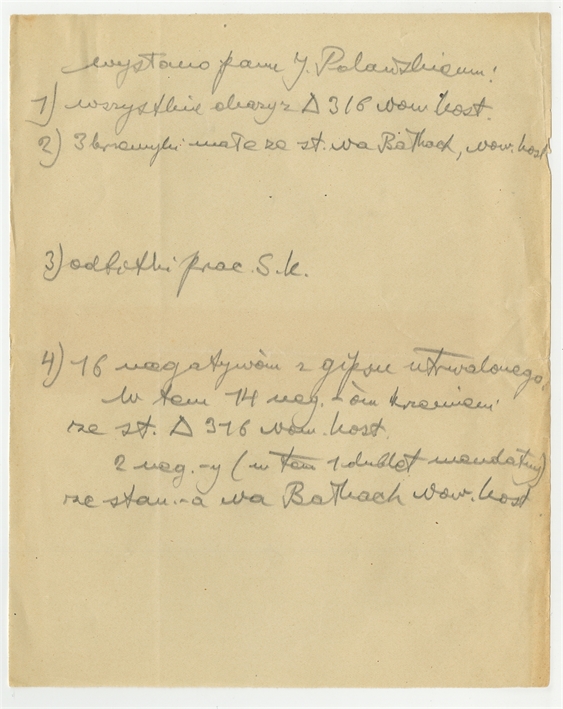 wysłano panu J. Polańskiemu:
1) wszystkie okazy z Δ 316 Now. Kost.
2) 3 krzemyki małe ze st. na Bathach, now. kost
3) odbitki prac. S. K.
4) 16 negatywów z gipsu utrwalonego,
w tem 14 neg.-ów krzemieni
ze st. Δ 316 now. kost.
2 neg.-y (w tem 1 dublet
ze stan.-a na Bathach now. kost